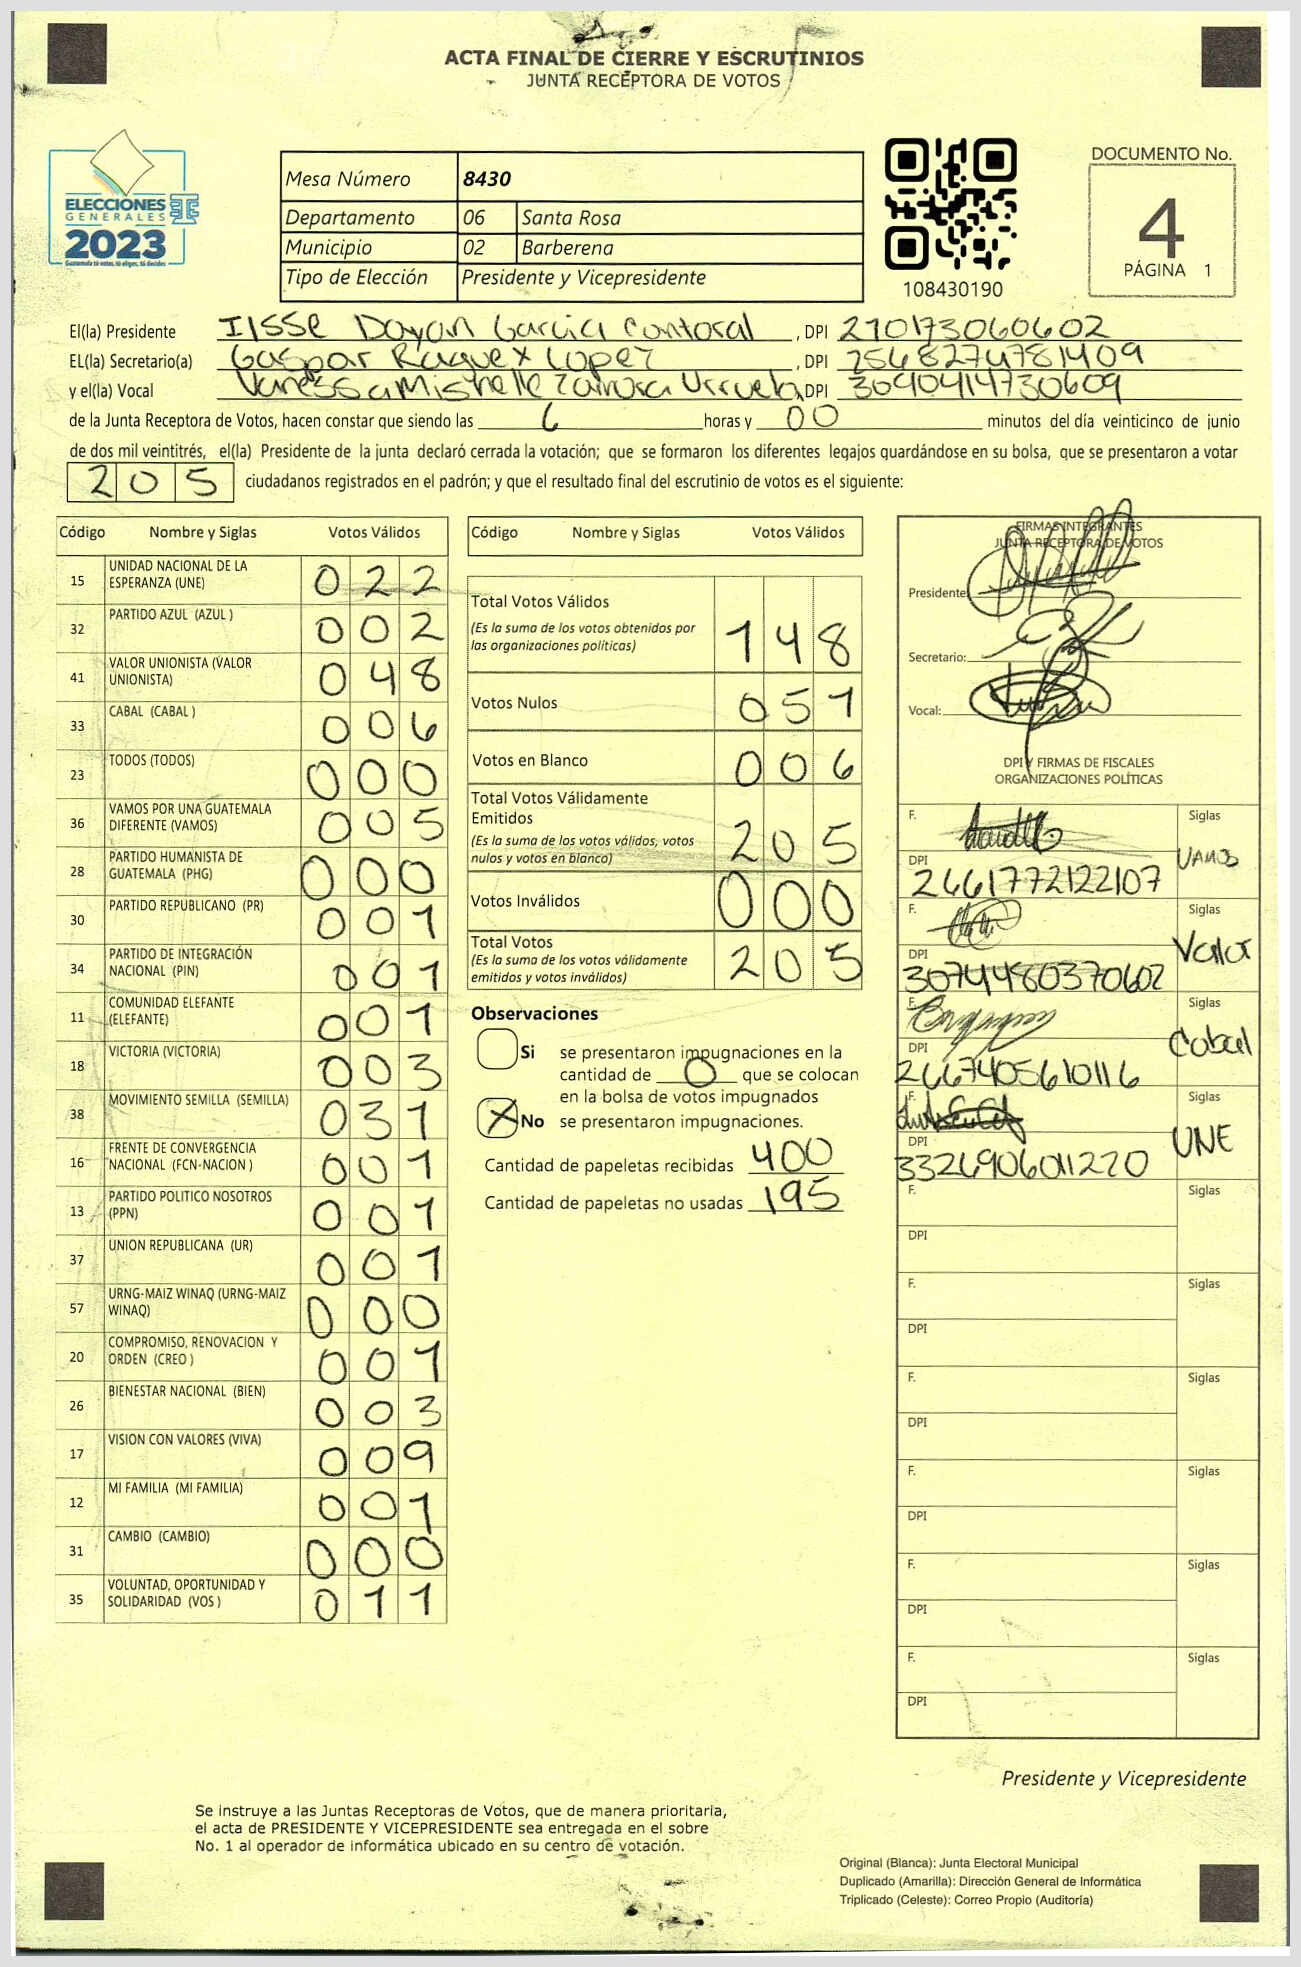 ACTA FINAL DE CIERRE Y ESCRUTINIOS
JUNTA RECEPTORA DE VOTOS
ELECCIONES
GENERALES
2023
Guatemala tú votas, tú eliges, tú decides
Mesa Número 8430
Departamento 06 Santa Rosa
Municipio 02 Barberena
Tipo de Elección Presidente y Vicepresidente
108430190
DOCUMENTO No.
4
PÁGINA 1
El(la) Presidente Ilsse Dayan Garcia Contoral, DPI 270173060602
EL(la) Secretario(a) Gaspar Raquex Lopez, DPI 2568274781409
y el(la) Vocal Vanessa Mishelle Urrueta, DPI 3090414730609
de la Junta Receptora de Votos, hacen constar que siendo las 6 horas y 00 minutos del día veinticinco de junio
de dos mil veintitrés, el(la) Presidente de la junta declaró cerrada la votación; que se formaron los diferentes legajos guardándose en su bolsa, que se presentaron a votar
205 ciudadanos registrados en el padrón; y que el resultado final del escrutinio de votos es el siguiente:
Código Nombre y Siglas Votos Válidos
15 UNIDAD NACIONAL DE LA ESPERANZA (UNE) 022
32 PARTIDO AZUL (AZUL ) 002
41 VALOR UNIONISTA (VALOR UNIONISTA) 048
33 CABAL (CABAL ) 006
23 TODOS (TODOS) 000
36 VAMOS POR UNA GUATEMALA DIFERENTE (VAMOS) 005
28 PARTIDO HUMANISTA DE GUATEMALA (PHG) 000
30 PARTIDO REPUBLICANO (PR) 001
34 PARTIDO DE INTEGRACIÓN NACIONAL (PIN) 001
11 COMUNIDAD ELEFANTE (ELEFANTE) 001
18 VICTORIA (VICTORIA) 003
38 MOVIMIENTO SEMILLA (SEMILLA) 031
16 FRENTE DE CONVERGENCIA NACIONAL (FCN-NACION ) 001
13 PARTIDO POLITICO NOSOTROS (PPN) 001
37 UNION REPUBLICANA (UR) 001
57 URNG-MAIZ WINAQ (URNG-MAIZ WINAQ) 000
20 COMPROMISO, RENOVACION Y ORDEN (CREO ) 001
26 BIENESTAR NACIONAL (BIEN) 003
17 VISION CON VALORES (VIVA) 009
12 MI FAMILIA (MI FAMILIA) 001
31 CAMBIO (CAMBIO) 000
35 VOLUNTAD, OPORTUNIDAD Y SOLIDARIDAD (VOS ) 011
Código Nombre y Siglas Votos Válidos
Total Votos Válidos 148
(Es la suma de los votos obtenidos por
las organizaciones políticas)
Votos Nulos 051
Votos en Blanco 006
Total Votos Válidamente
Emitidos 205
(Es la suma de los votos válidos, votos
nulos y votos en blanco)
Votos Inválidos 000
Total Votos 205
(Es la suma de los votos válidamente
emitidos y votos inválidos)
Observaciones
Si se presentaron impugnaciones en la
cantidad de 0 que se colocan
en la bolsa de votos impugnados
X No se presentaron impugnaciones.
Cantidad de papeletas recibidas 400
Cantidad de papeletas no usadas 195
FIRMAS INTEGRANTES
JUNTA RECEPTORA DE VOTOS
Presidente:
Secretario:
Vocal:
DPI Y FIRMAS DE FISCALES
ORGANIZACIONES POLÍTICAS
F. Siglas
DPI 2661772122107 VAMOS
F. Siglas
DPI 3074480370602 Valor
F. Siglas
DPI 2667405610116 Cabal
F. Siglas
DPI 3326906011220 UNE
F. Siglas
DPI
F. Siglas
DPI
F. Siglas
DPI
F. Siglas
DPI
F. Siglas
DPI
F. Siglas
DPI
Presidente y Vicepresidente
Se instruye a las Juntas Receptoras de Votos, que de manera prioritaria,
el acta de PRESIDENTE Y VICEPRESIDENTE sea entregada en el sobre
No. 1 al operador de informática ubicado en su centro de votación.
Original (Blanca): Junta Electoral Municipal
Duplicado (Amarilla): Dirección General de Informática
Triplicado (Celeste): Correo Propio (Auditoría)